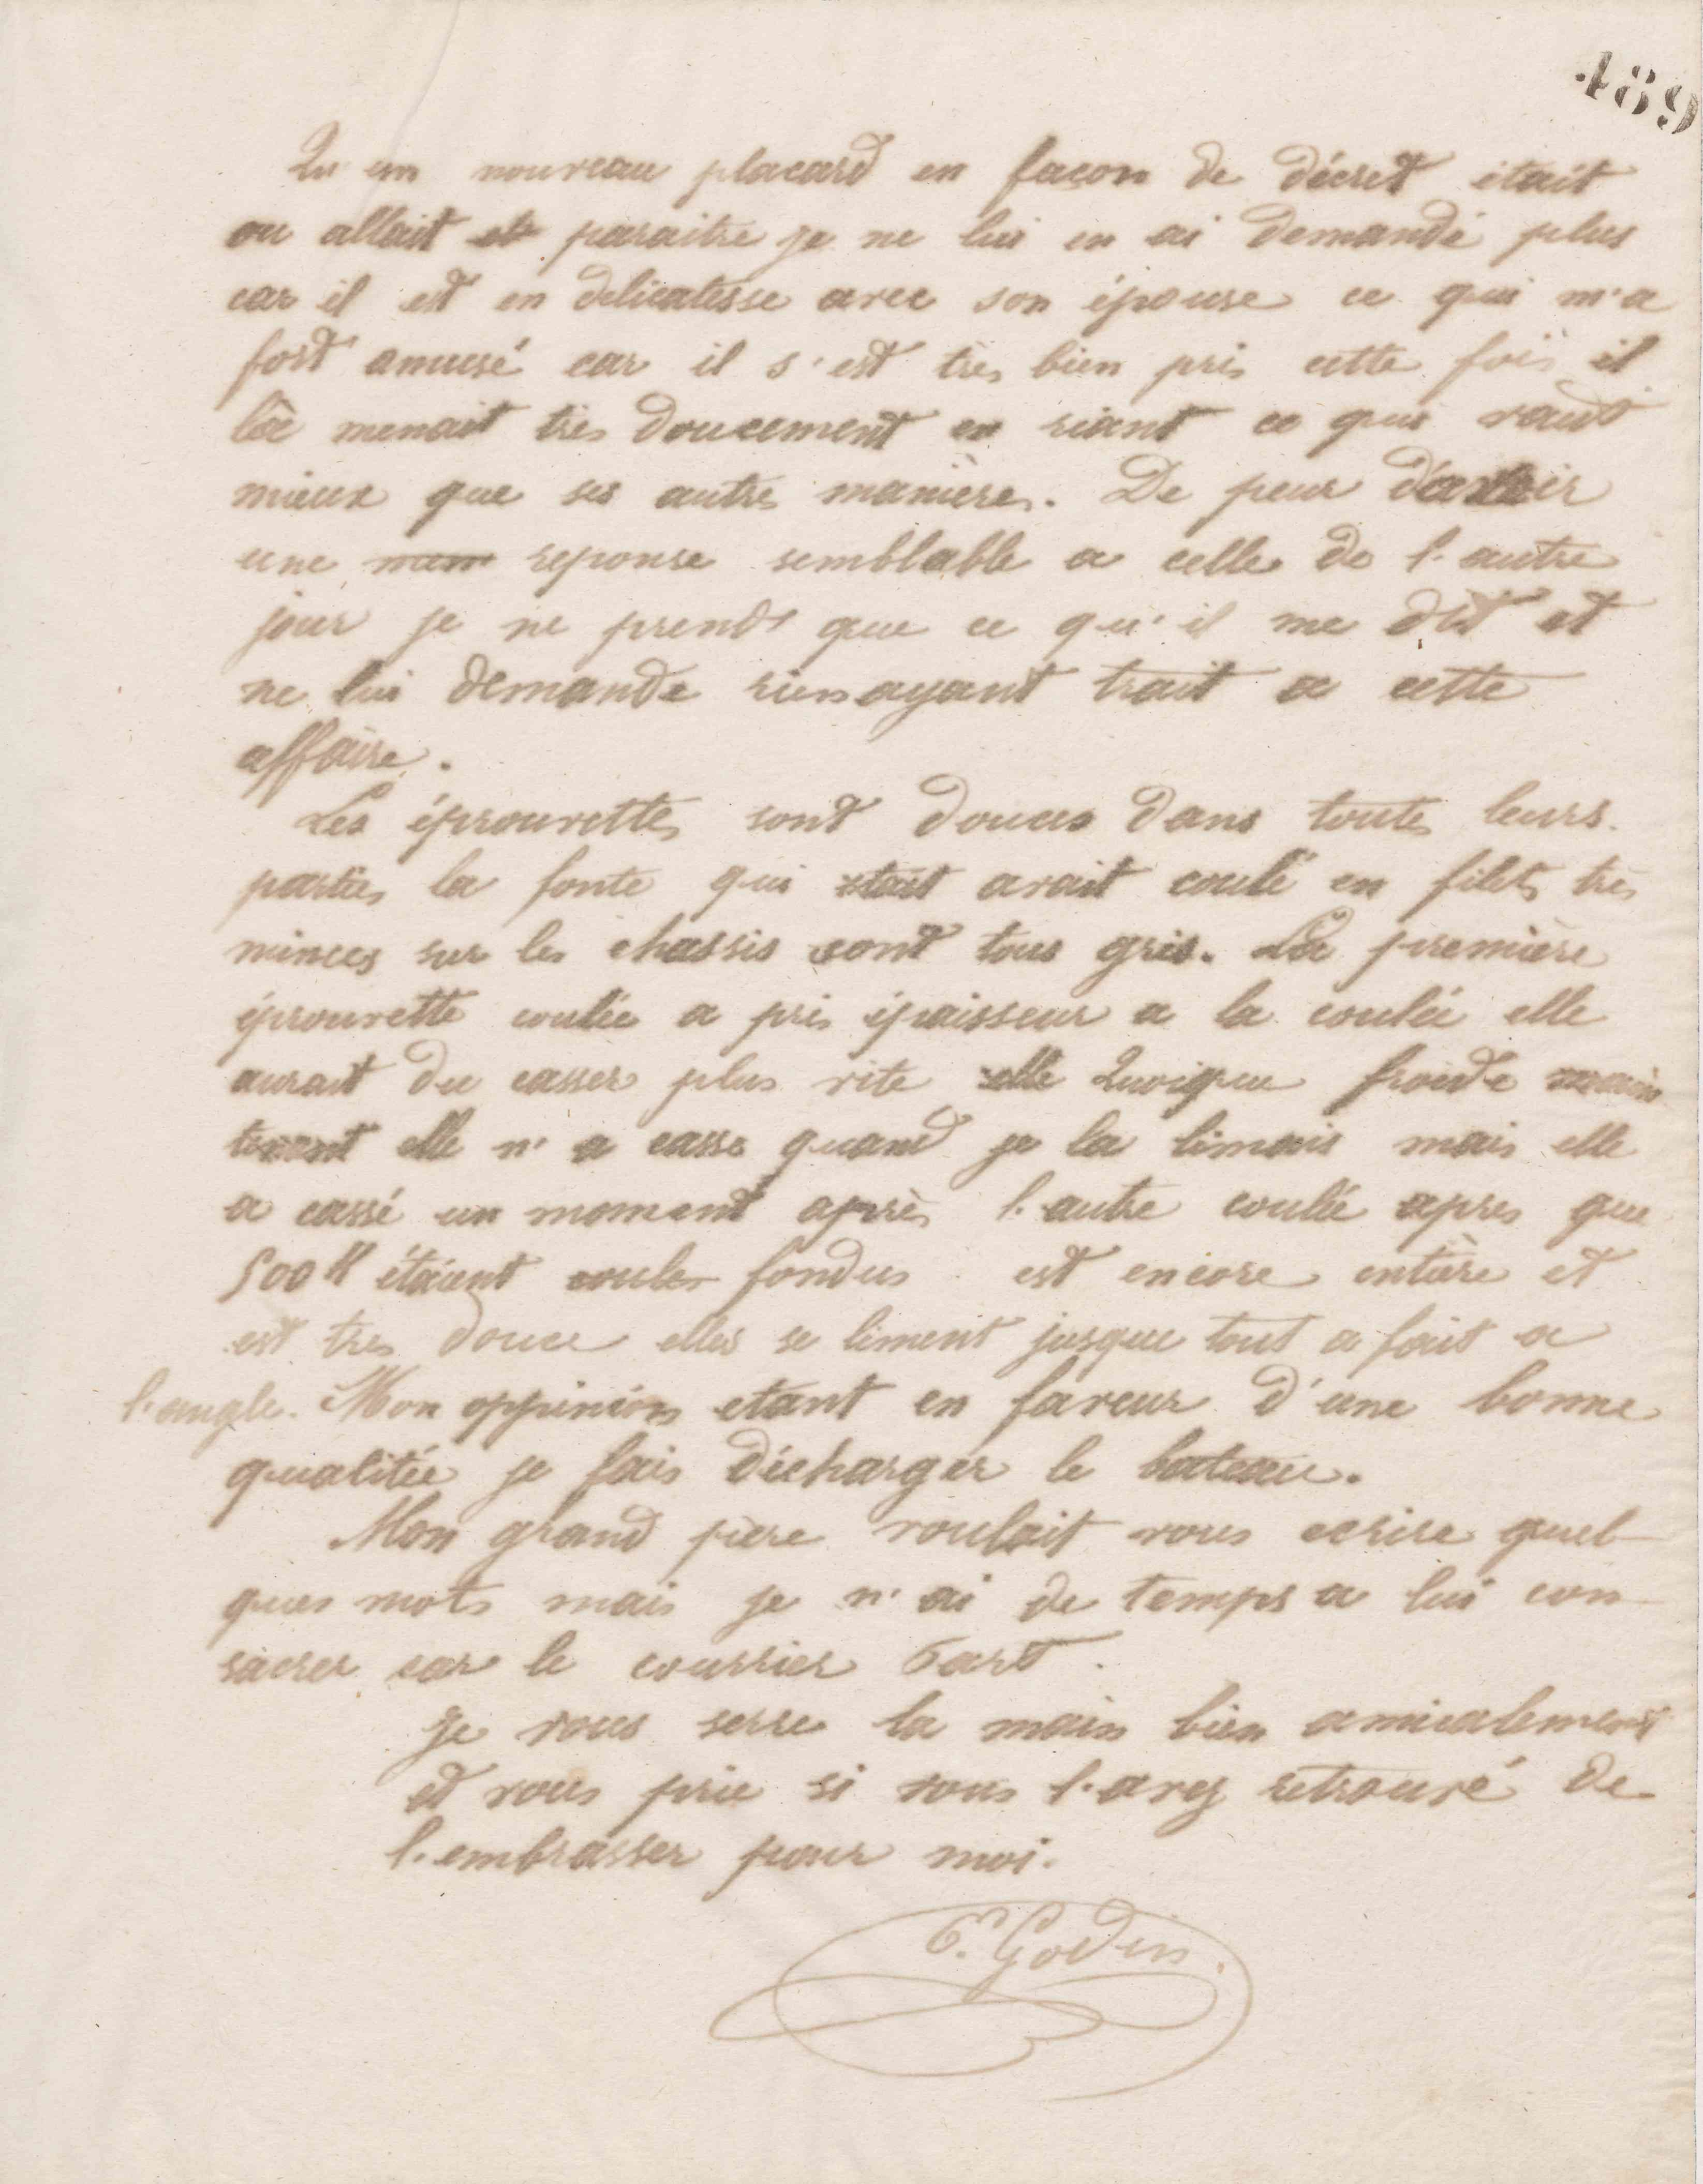 489
Qu'un nouveau placard en façon de décret était
ou allait paraitre je ne lui en ai demandé plus
car il est en delicatesse avec son épouse ce qui m'a
fort amusé car il s'est très bien pris cette fois il
la menait très doucement en riant ce qui vaut
mieux que ses autres manières. De peur d'avoir
une reponse semblable a celle de l'autre
jour je ne prends que ce qu'il me dit et
ne lui demande rien ayant trait a cette
affaire.
Les éprouvettes sont douces dans toutes leurs
parties la fonte qui était avait coulé en filets très
minces sur les chassis sont tous gris. La première
éprouvette coulée a pris épaisseur a la coulée elle
aurait du casser plus vite elle Quoique froide main
tenant elle n'a cassé quand je la limais mais elle
a cassé un moment après l'autre coulée apres que
500 K étaient coulés fondus est encore entière et
est très douce elles se liment jusque tout a fait a
l'angle. Mon oppinion etant en faveur d'une bonne
qualitée je fais décharger le bateau.
Mon grand père voulait vous ecrire quel-
ques mots mais je n'ai de temps a lui con-
sacrer car le courrier part.
je vous serre la main bien amicalement
et vous prie si vous l'avez retrouvé de
l'embrasser pour moi.
E. Godin